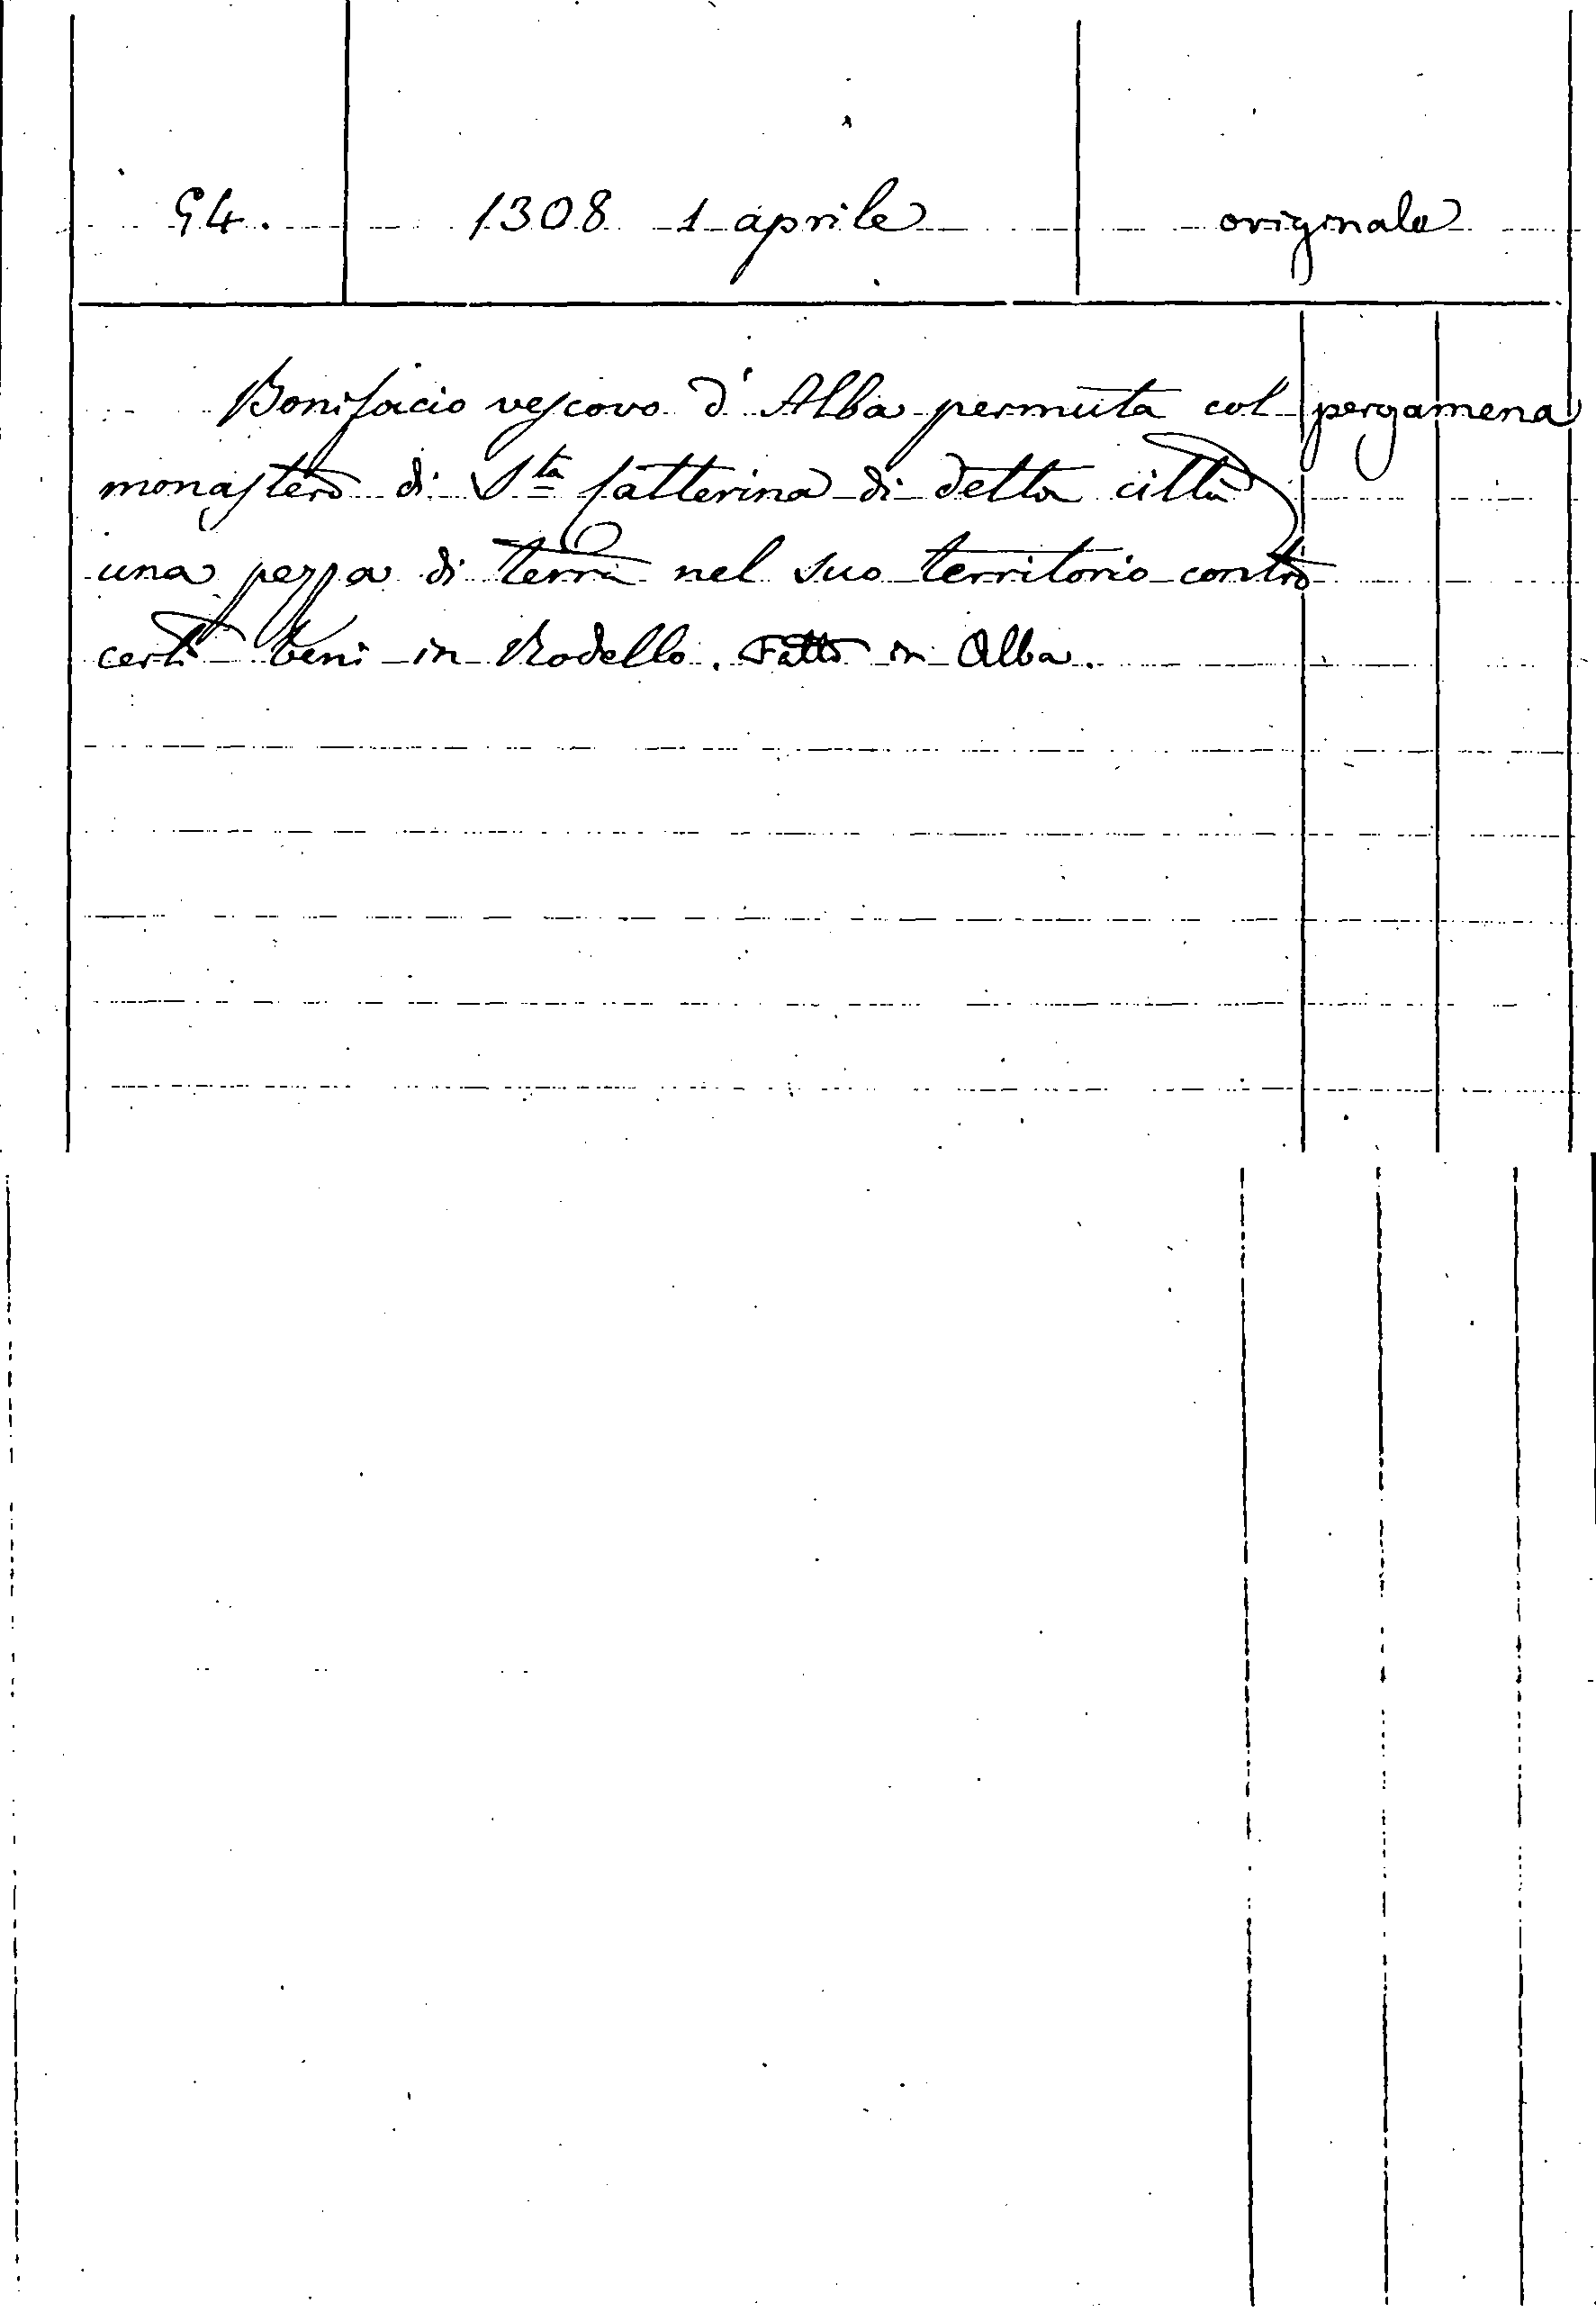 94. 1308 1 aprile originale
Bonifacio vescovo d'Alba permuta col pergamena
monastero di S.ta Catterina di detta città
una pezza di terra nel suo territorio contro
certi beni in Rodello. Fatto in Alba.